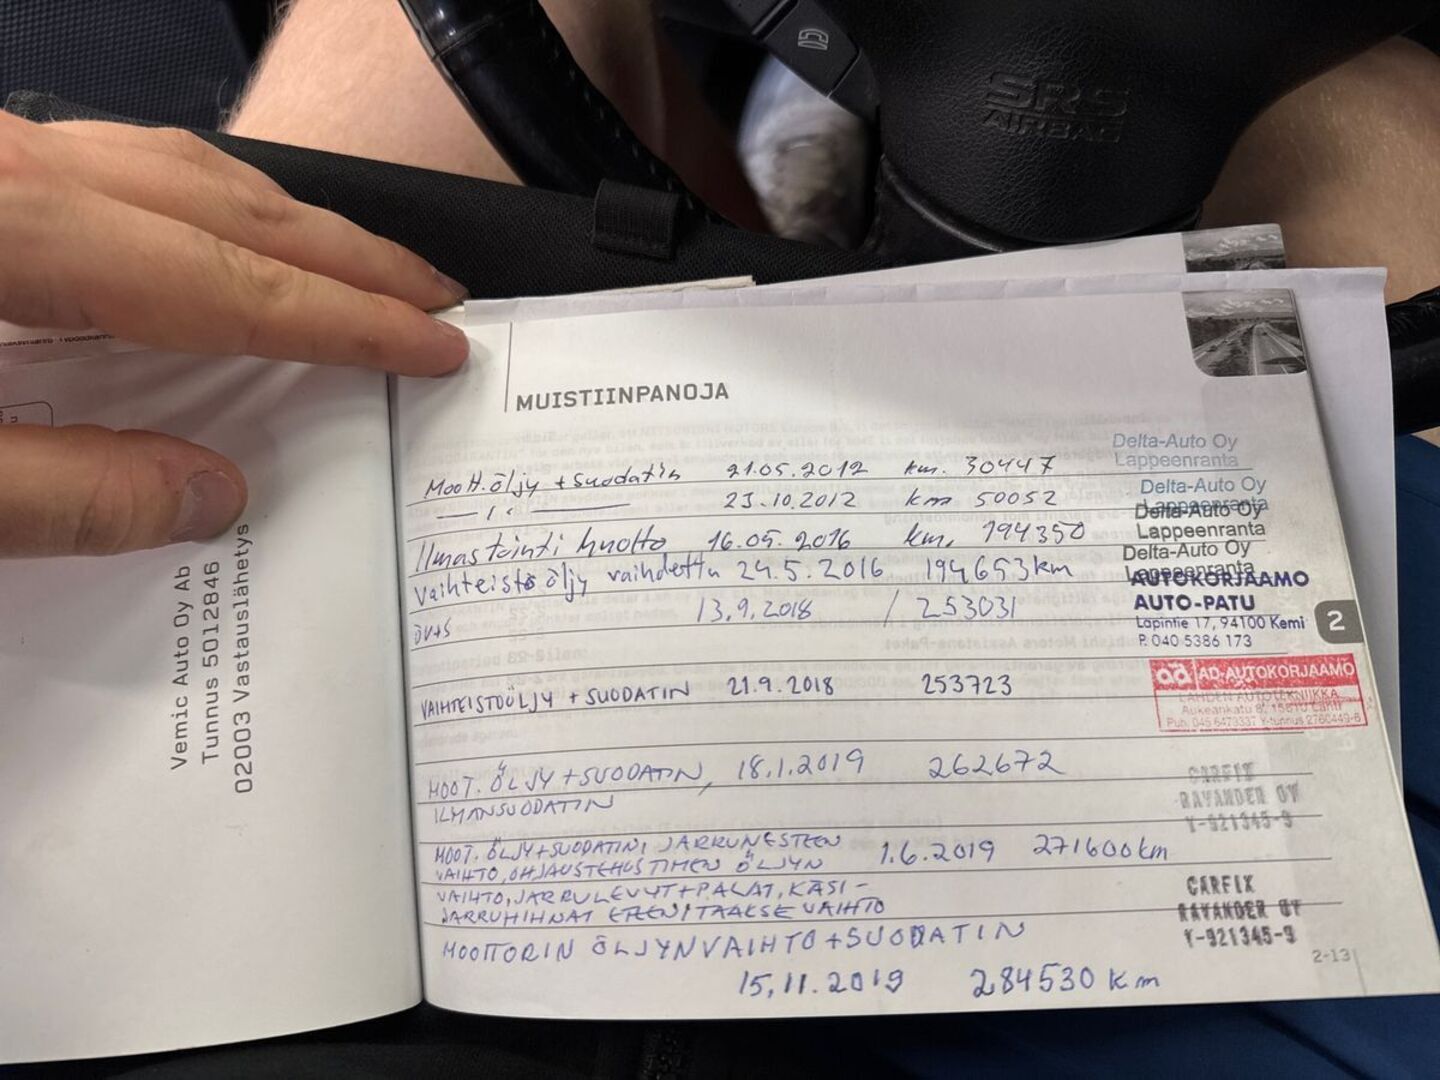 SRS
AIRBAG
Vemic Auto Oy Ab
Tunnus 5012846
02003 Vastauslähetys
MUISTIINPANOJA
Moott. öljy + suodatin 21.05.2012 km. 30447
Delta-Auto Oy
Lappeenranta
— 1 — 23.10.2012 km 50052
Delta-Auto Oy
Lappeenranta
Ilmastointi huolto 16.05.2016 km. 194350
Delta-Auto Oy
Lappeenranta
Vaihteisto öljy vaihdettu 24.5.2016 194653km
Delta-Auto Oy
Lappeenranta
ÖV+S 13.9.2018 / 253031
AUTOKORJAAMO
AUTO-PATU
Lapintie 17, 94100 Kemi
P. 040 5386 173
2
VAIHTEISTOÖLJY + SUODATIN 21.9.2018 253723
AD-AUTOKORJAAMO
LAHDEN AUTOTEKNIIKKA
Aukeankatu 8, 15610 Lahti
Puh. 045 6473337 Y-tunnus 2760449-6
MOOT. ÖLJY+SUODATIN, 18.1.2019 262672
ILMANSUODATIN
CARFIX
RAVANDER OY
Y-921345-9
MOOT. ÖLJY+SUODATIN, JARRUNESTEEN
VAIHTO, OHJAUSTEHOSTIMEN ÖLJYN 1.6.2019 271600km
VAIHTO, JARRULEVYT+PALAT, KÄSI-
JARRUHIHNAT ETEEN/TAAKSE VAIHTO
CARFIX
RAVANDER OY
Y-921345-9
MOOTTORIN ÖLJYNVAIHTO+SUODATIN
15.11.2019 284530 km
2-13